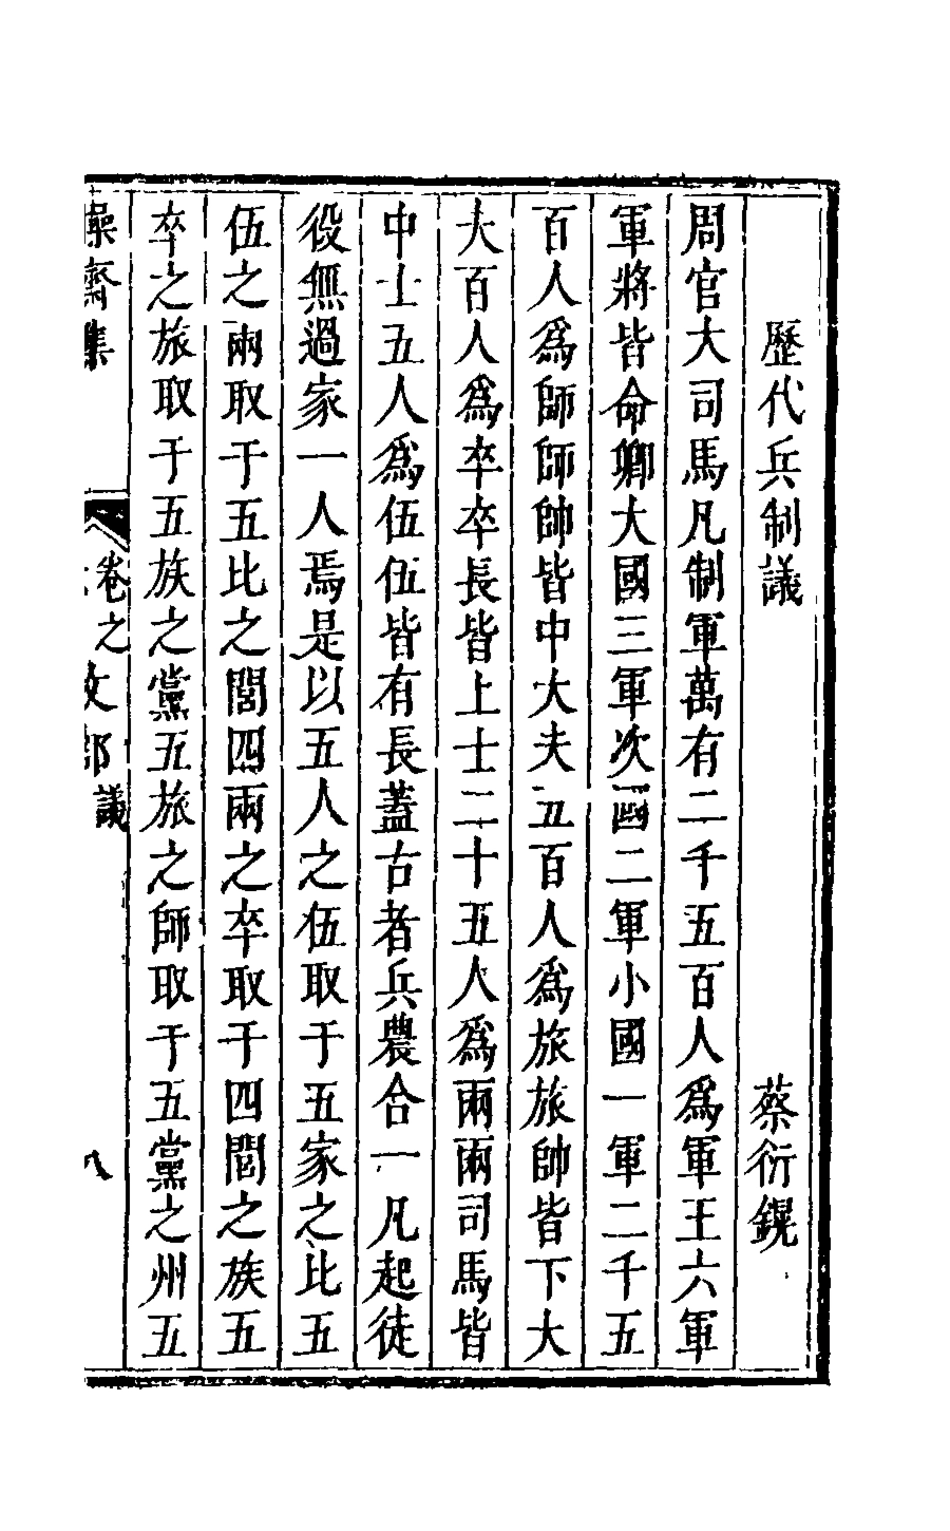 歷代兵制議 蔡衍鎤
周官大司馬凡制軍萬有二千五百人爲軍王六軍
軍將皆命卿大國三軍次國二軍小國一軍二千五
百人爲師師帥皆中大夫五百人爲旅旅帥皆下大
夫百人爲卒卒長皆上士二十五人爲兩兩司馬皆
中士五人爲伍伍皆有長蓋古者兵農合一凡起徒
役無過家一人焉是以五人之伍取于五家之比五
伍之兩取于五比之閭四兩之卒取于四閭之族五
卒之旅取于五族之黨五旅之師取于五黨之州五
操齋集 卷之 文部 議 八